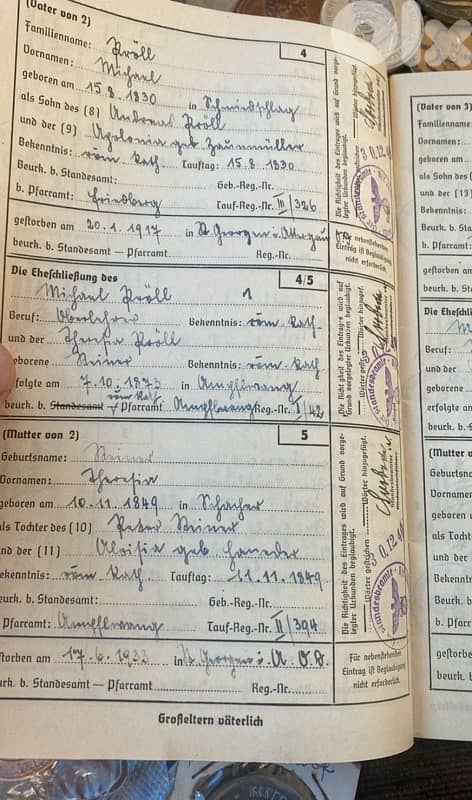 (Vater von 2)
Familienname: Pröll
4
Vornamen: Michael
geboren am 15.8.1830 in Schmiedschlag
als Sohn des (8) Andreas Pröll
und der (9) Apolonia geb Zaunmüller
Bekenntnis: röm. kath. Tauftag: 15.8.1830
Beurk. b. Standesamt: Geb.-Reg.-Nr.
b. Pfarramt: Friedberg Tauf-Reg.-Nr. III/326
gestorben am 20.1.1917 in St Georgen i. Attergau
beurk. b. Standesamt — Pfarramt Reg.-Nr.
Die Richtigkeit des Eintrages wird auf Grund vorge-
legter Urkunden beglaubigt.
Wörter hinzugefügt.
Für nebenstehenden
Eintrag ist Beglaubigung
nicht erforderlich.
Die Eheschließung des
4/5
Michael Pröll
Beruf: Oberlehrer Bekenntnis: röm. kath.
und der Theresia Pröll
geborene Steiner Bekenntnis: röm. kath
erfolgte am 7.10.1873 in Ampflwang
röm kath.
beurk. b. Standesamt Pfarramt Ampflwang Reg.-Nr. I/42
Die Richtigkeit des Eintrages wird auf
Grund vorgelegter Urkunden beglaubigt.
Wörter hinzugef.
(Mutter von 2)
5
Geburtsname: Steiner
Vornamen: Theresia
geboren am 10.11.1849 in Schacher
als Tochter des (10) Peter Steiner
und der (11) Aloisia geb
Bekenntnis: röm. kath. Tauftag: 11.11.1849.
Beurk. b. Standesamt: Geb.-Reg.-Nr.
Pfarramt: Ampflwang Tauf-Reg.-Nr. II/394
gestorben am 17.6.1933 in St Georgen i. A. O.D.
beurk. b. Standesamt — Pfarramt Reg.-Nr.
Die Richtigkeit des Eintrages wird auf Grund vorge-
legter Urkunden beglaubigt.
Wörter gestrichen Wörter hinzugefügt.
Für nebenstehenden
Eintrag ist Beglaubigung
nicht erforderlich.
Großeltern väterlich
(Vater von 3)
Familienname:
Vornamen:
geboren am
als Sohn des
und der (13)
Bekenntnis:
Beurk. b. Sta
b. Pfarramt:
gestorben am
beurk. b. Sta
Die Eheschließ
Beruf:
und der
geborene
erfolgte am
beurk. b. Sta
(Mutter v
Geburtsna
Vornamen
geboren a
als Tocht
und der
Bekennt
Beurk. b
b. Pfarr
gestorbe
beurk. b